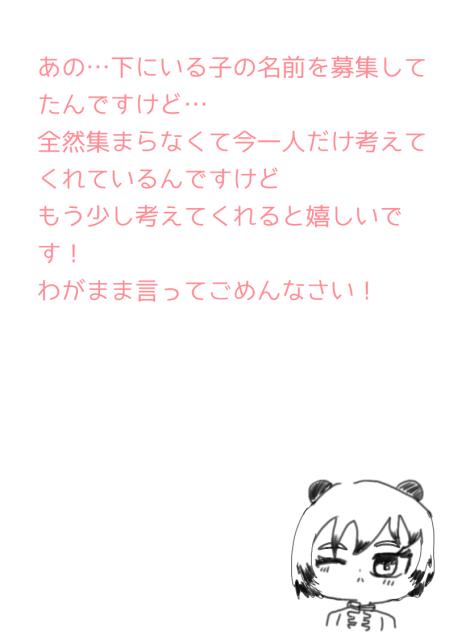 あの…下にいる子の名前を募集して
たんですけど…
全然集まらなくて今一人だけ考えて
くれているんですけど
もう少し考えてくれると嬉しいで
す！
わがまま言ってごめんなさい！